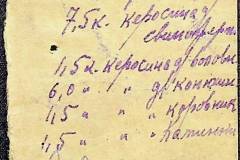 7,5к. керосин д
свиноферм
1,5к. керосин д коровн
6,0 " " д/ конюшн
1,5 " " " коровник
1,5 " " "